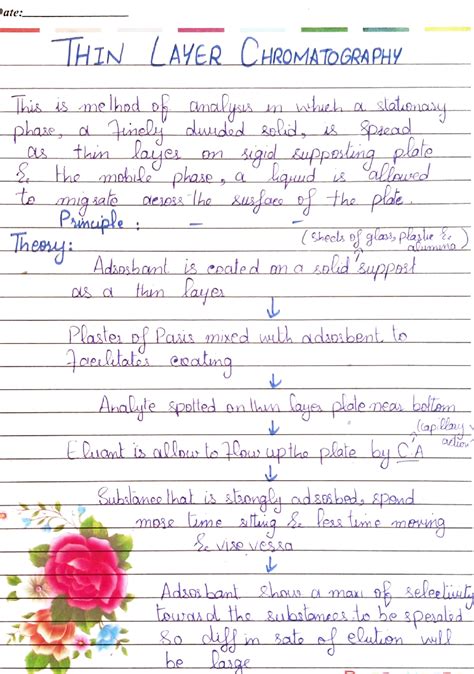 Date:
THIN LAYER CHROMATOGRAPHY
This is method of analysis in which a stationary
phase, a finely divided solid, is spread
as thin layer on rigid supporting plate
& the mobile phase, a liquid is allowed
to migrate across the surface of the plate.
Principle : – –
Theory: (sheets of glass, plastic & alumina)
Adsorbant is coated on a solid support
as a thin layer
↓
Plaster of Paris mixed with adsorbent to
facilitates coating
↓
Analyte spotted on thin layer plate near bottom
(capillary action)
Eluant is allow to flow up the plate by CA
↓
Substance that is strongly adsorbed, spend
more time sitting & less time moving
& vise versa
↓
Adsorbant show a maxi of selectivity
toward the substances to be sperated
so diff in rate of elution will
be large